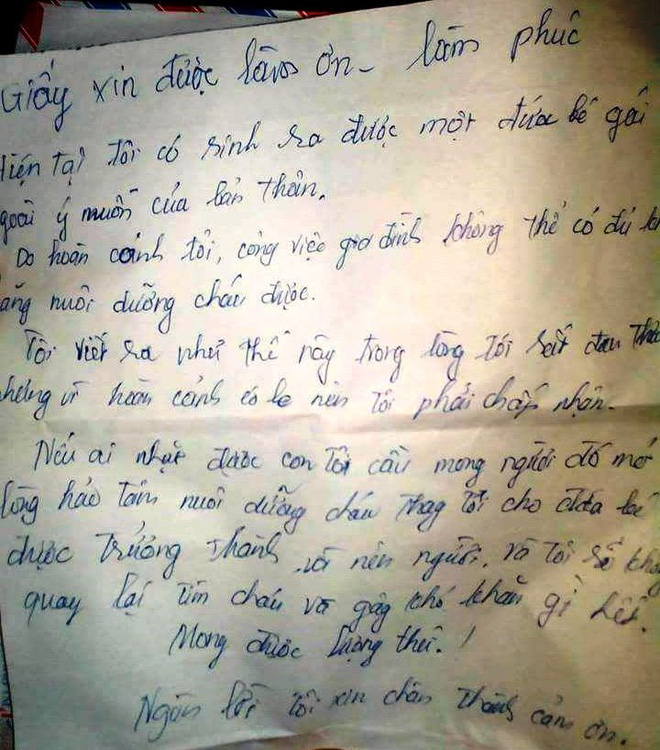 Giấy xin được làm ơn - làm phúc
Hiện tại tôi có sinh ra được một đứa bé gái
goài ý muốn của bản thân.
Do hoàn cảnh tôi, công việc gia đình không thể có đủ k
ăng nuôi dưỡng cháu được.
Tôi viết ra như thế này trong lòng tôi rất đau
nhưng vì hoàn cảnh éo le nên tôi phải chấp nhận.
Nếu ai nhặt được con tôi cầu mong người đó mở
lòng hảo tâm nuôi dưỡng cháu thay tôi cho đứa bé
được trưởng thành và nên người, và tôi sẽ khô
quay lại tìm cháu và gây khó khăn gì hết.
Mong được lượng thứ.!
Ngàn lời tôi xin chân thành cảm ơn.